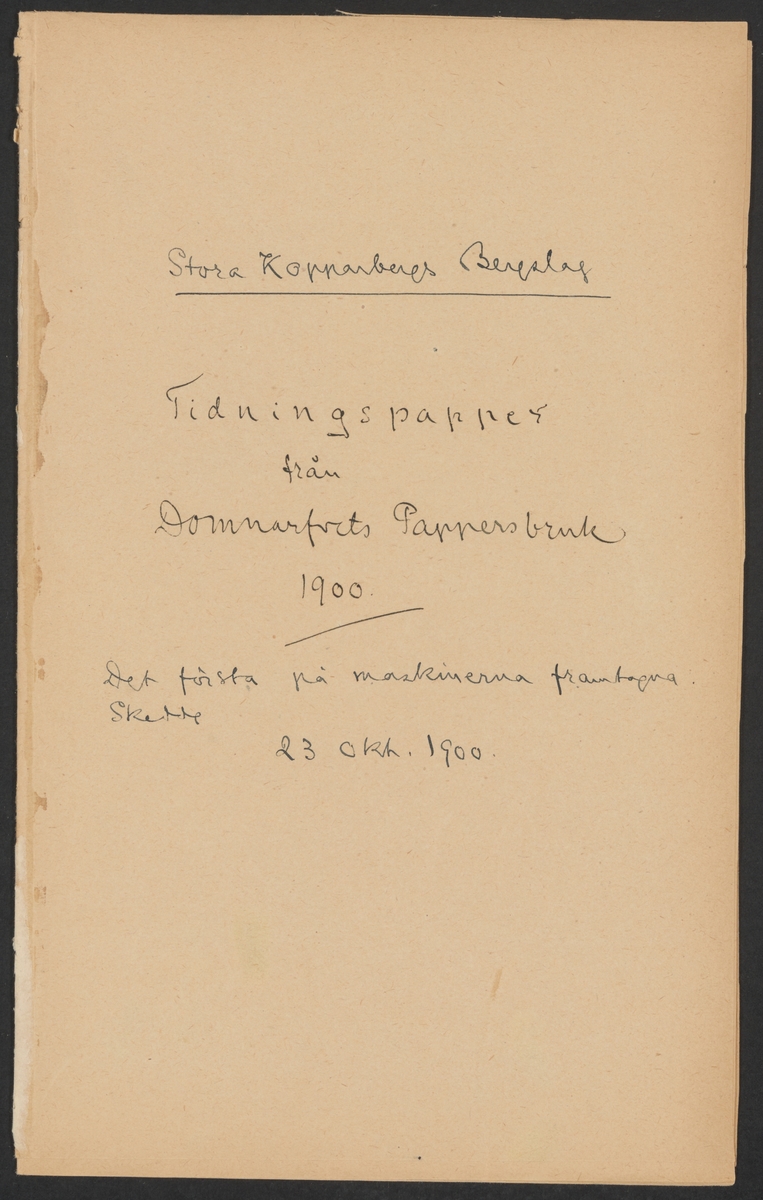 Stora Kopparbergs Bergslag
Tidningspapper
från
Domnarfvets Pappersbruk
1900.
Det första på maskinerna framtagna.
Skedde
23 Okt. 1900.